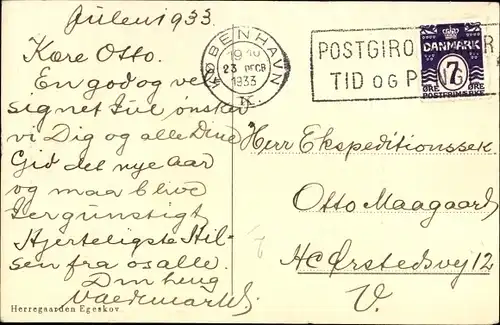 Julen 1933.
Kære Otto.
En god og vel
signet Jul ønsker
vi Dig og alle Dine
Gid det nye Aar
og maa blive
Jer gunstigt
Hjerteligste Hil-
sen fra os alle.
Din heng
Herregaarden Egeskov.
KØBENHAVN
23 DECR
1933
POSTGIRO
TID OG
DANMARK
7
ØRE ØRE
POSTFRIMÆRKE
Herr Ekspeditionssek.
Otto Maagaard
H C Ørstedsvej 12
V.